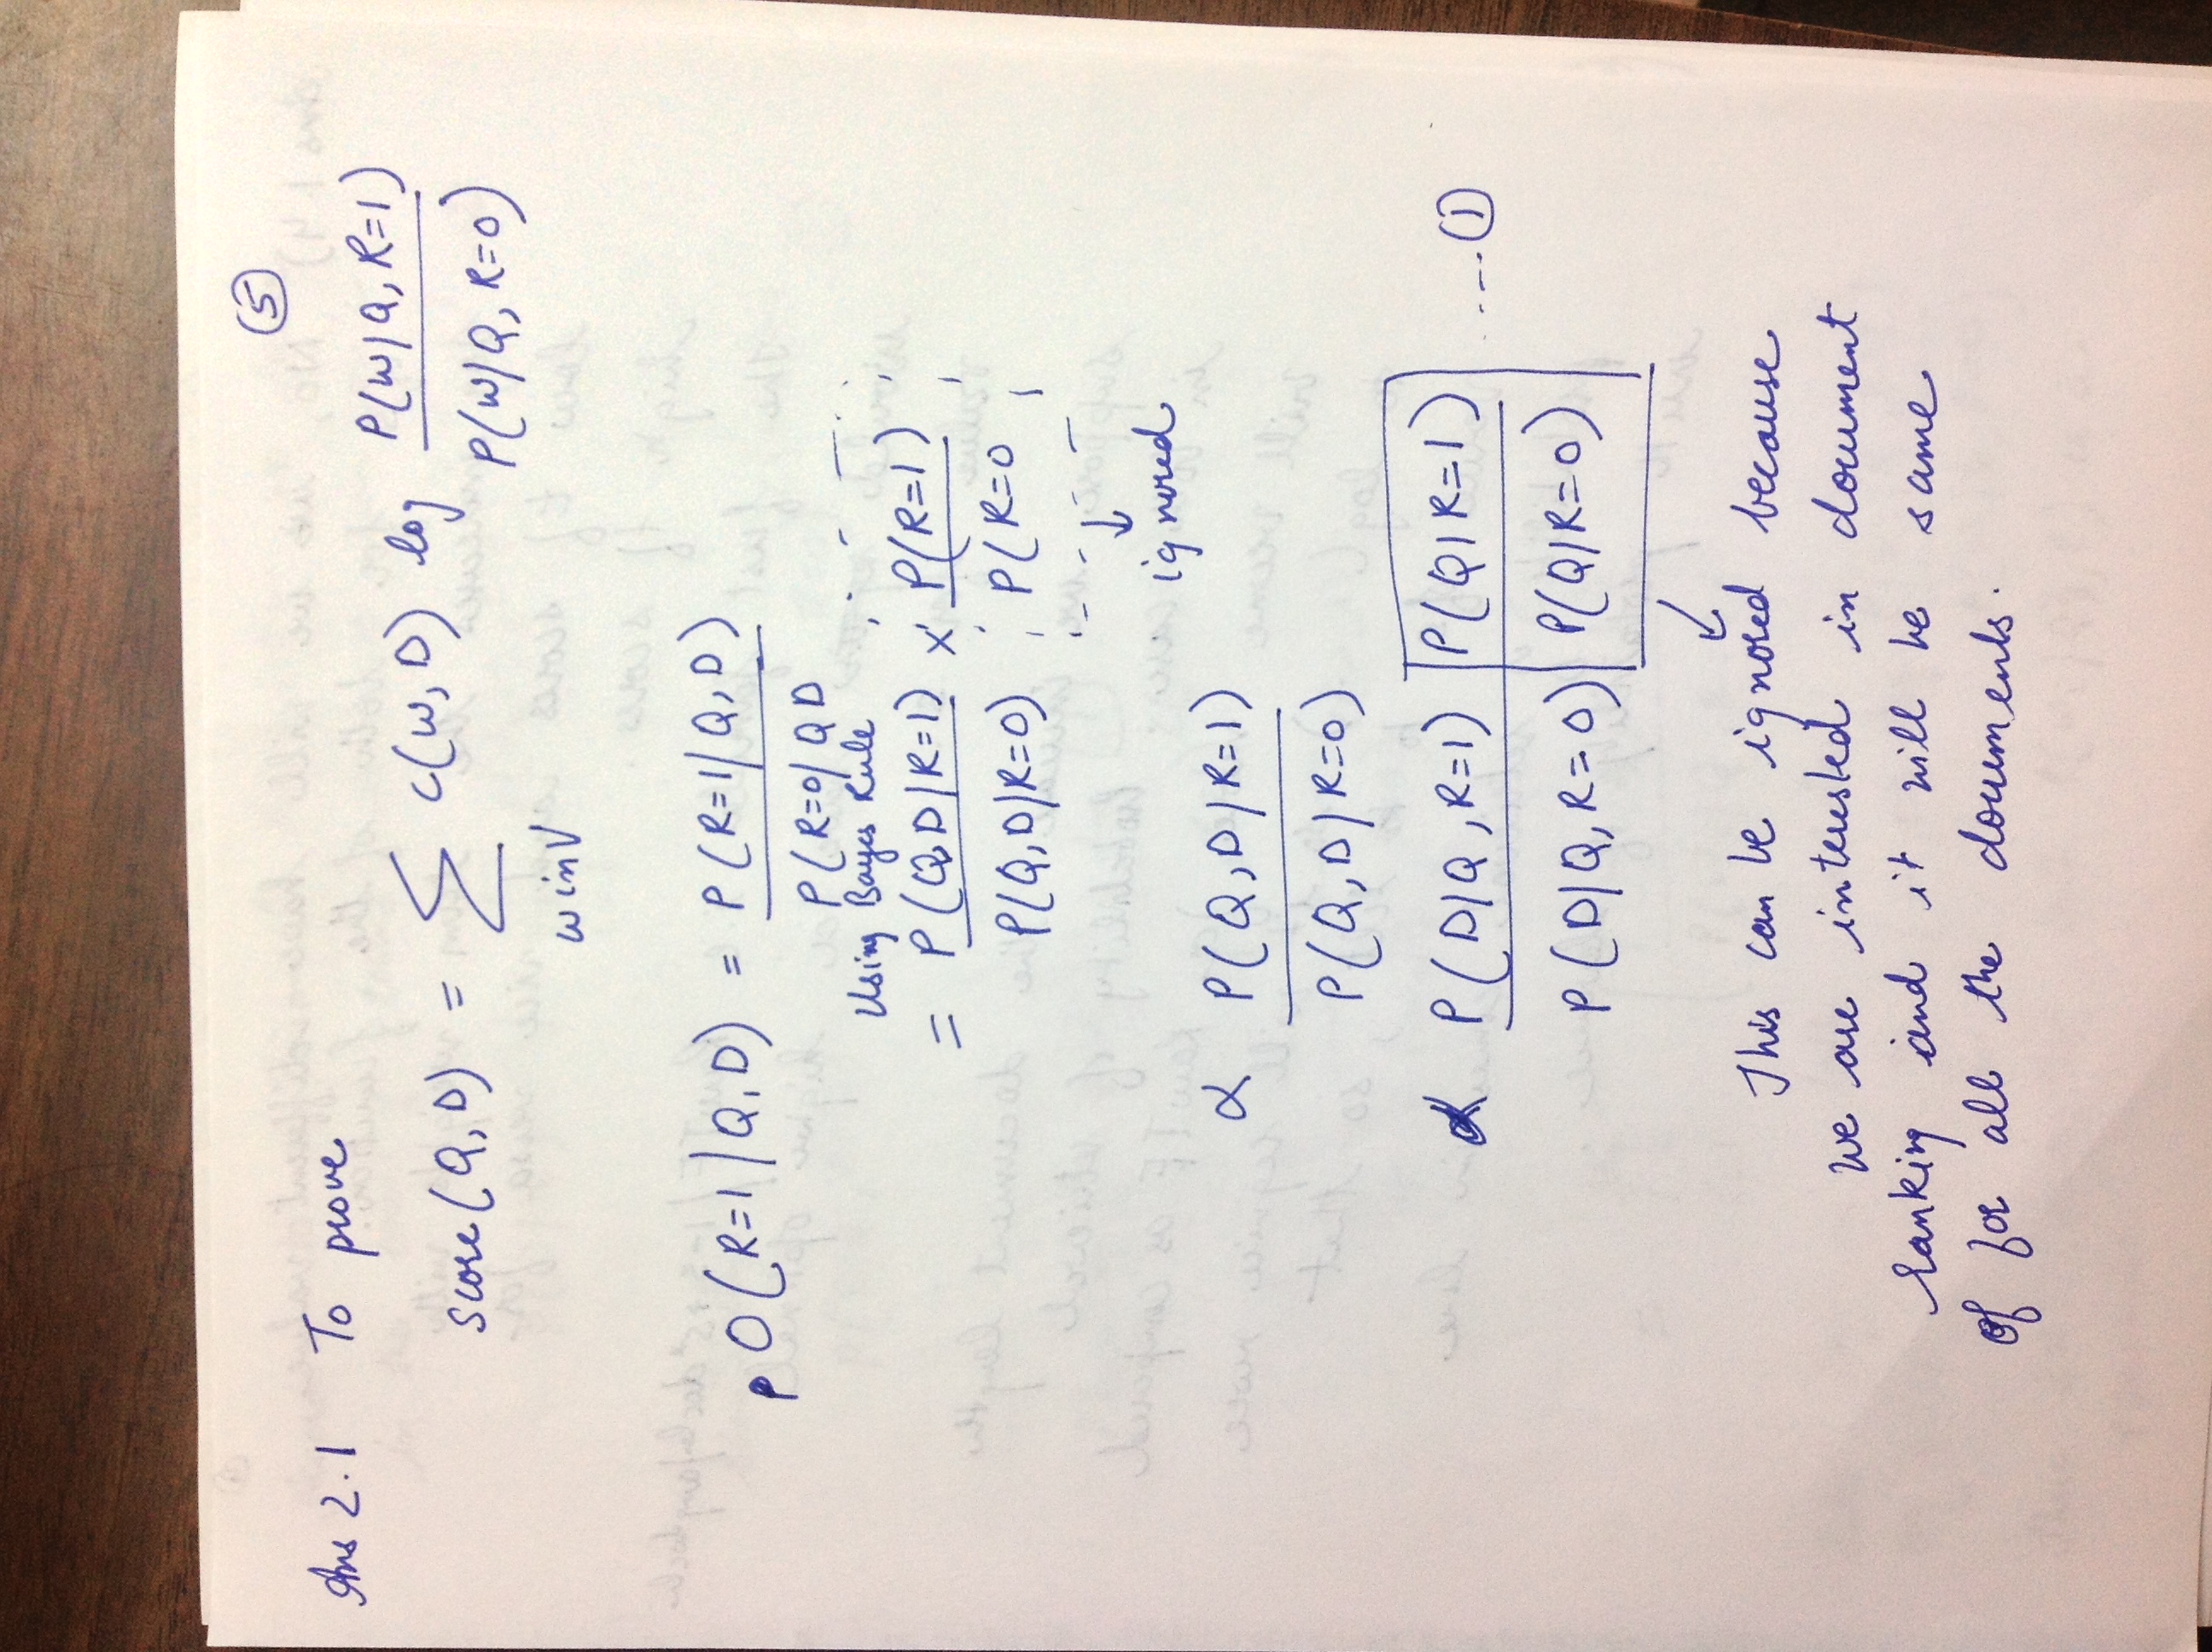 5
Ans 2.1 To prove
score(Q,D) = ∑ c(w,D) log P(w|Q,R=1)
P(w|Q,R=0)
w in V
O(R=1|Q,D) = P(R=1|Q,D)
P(R=0|QD
Using Bayes Rule
= P(Q,D|R=1) × P(R=1)
P(Q,D|R=0) P(R=0
ignored
α P(Q,D|R=1)
P(Q,D|R=0)
α P(D|Q,R=1) P(Q|R=1) ....①
P(D|Q,R=0) P(Q|R=0)
This can be ignored because
we are interested in document
ranking and it will be same
of for all the documents.